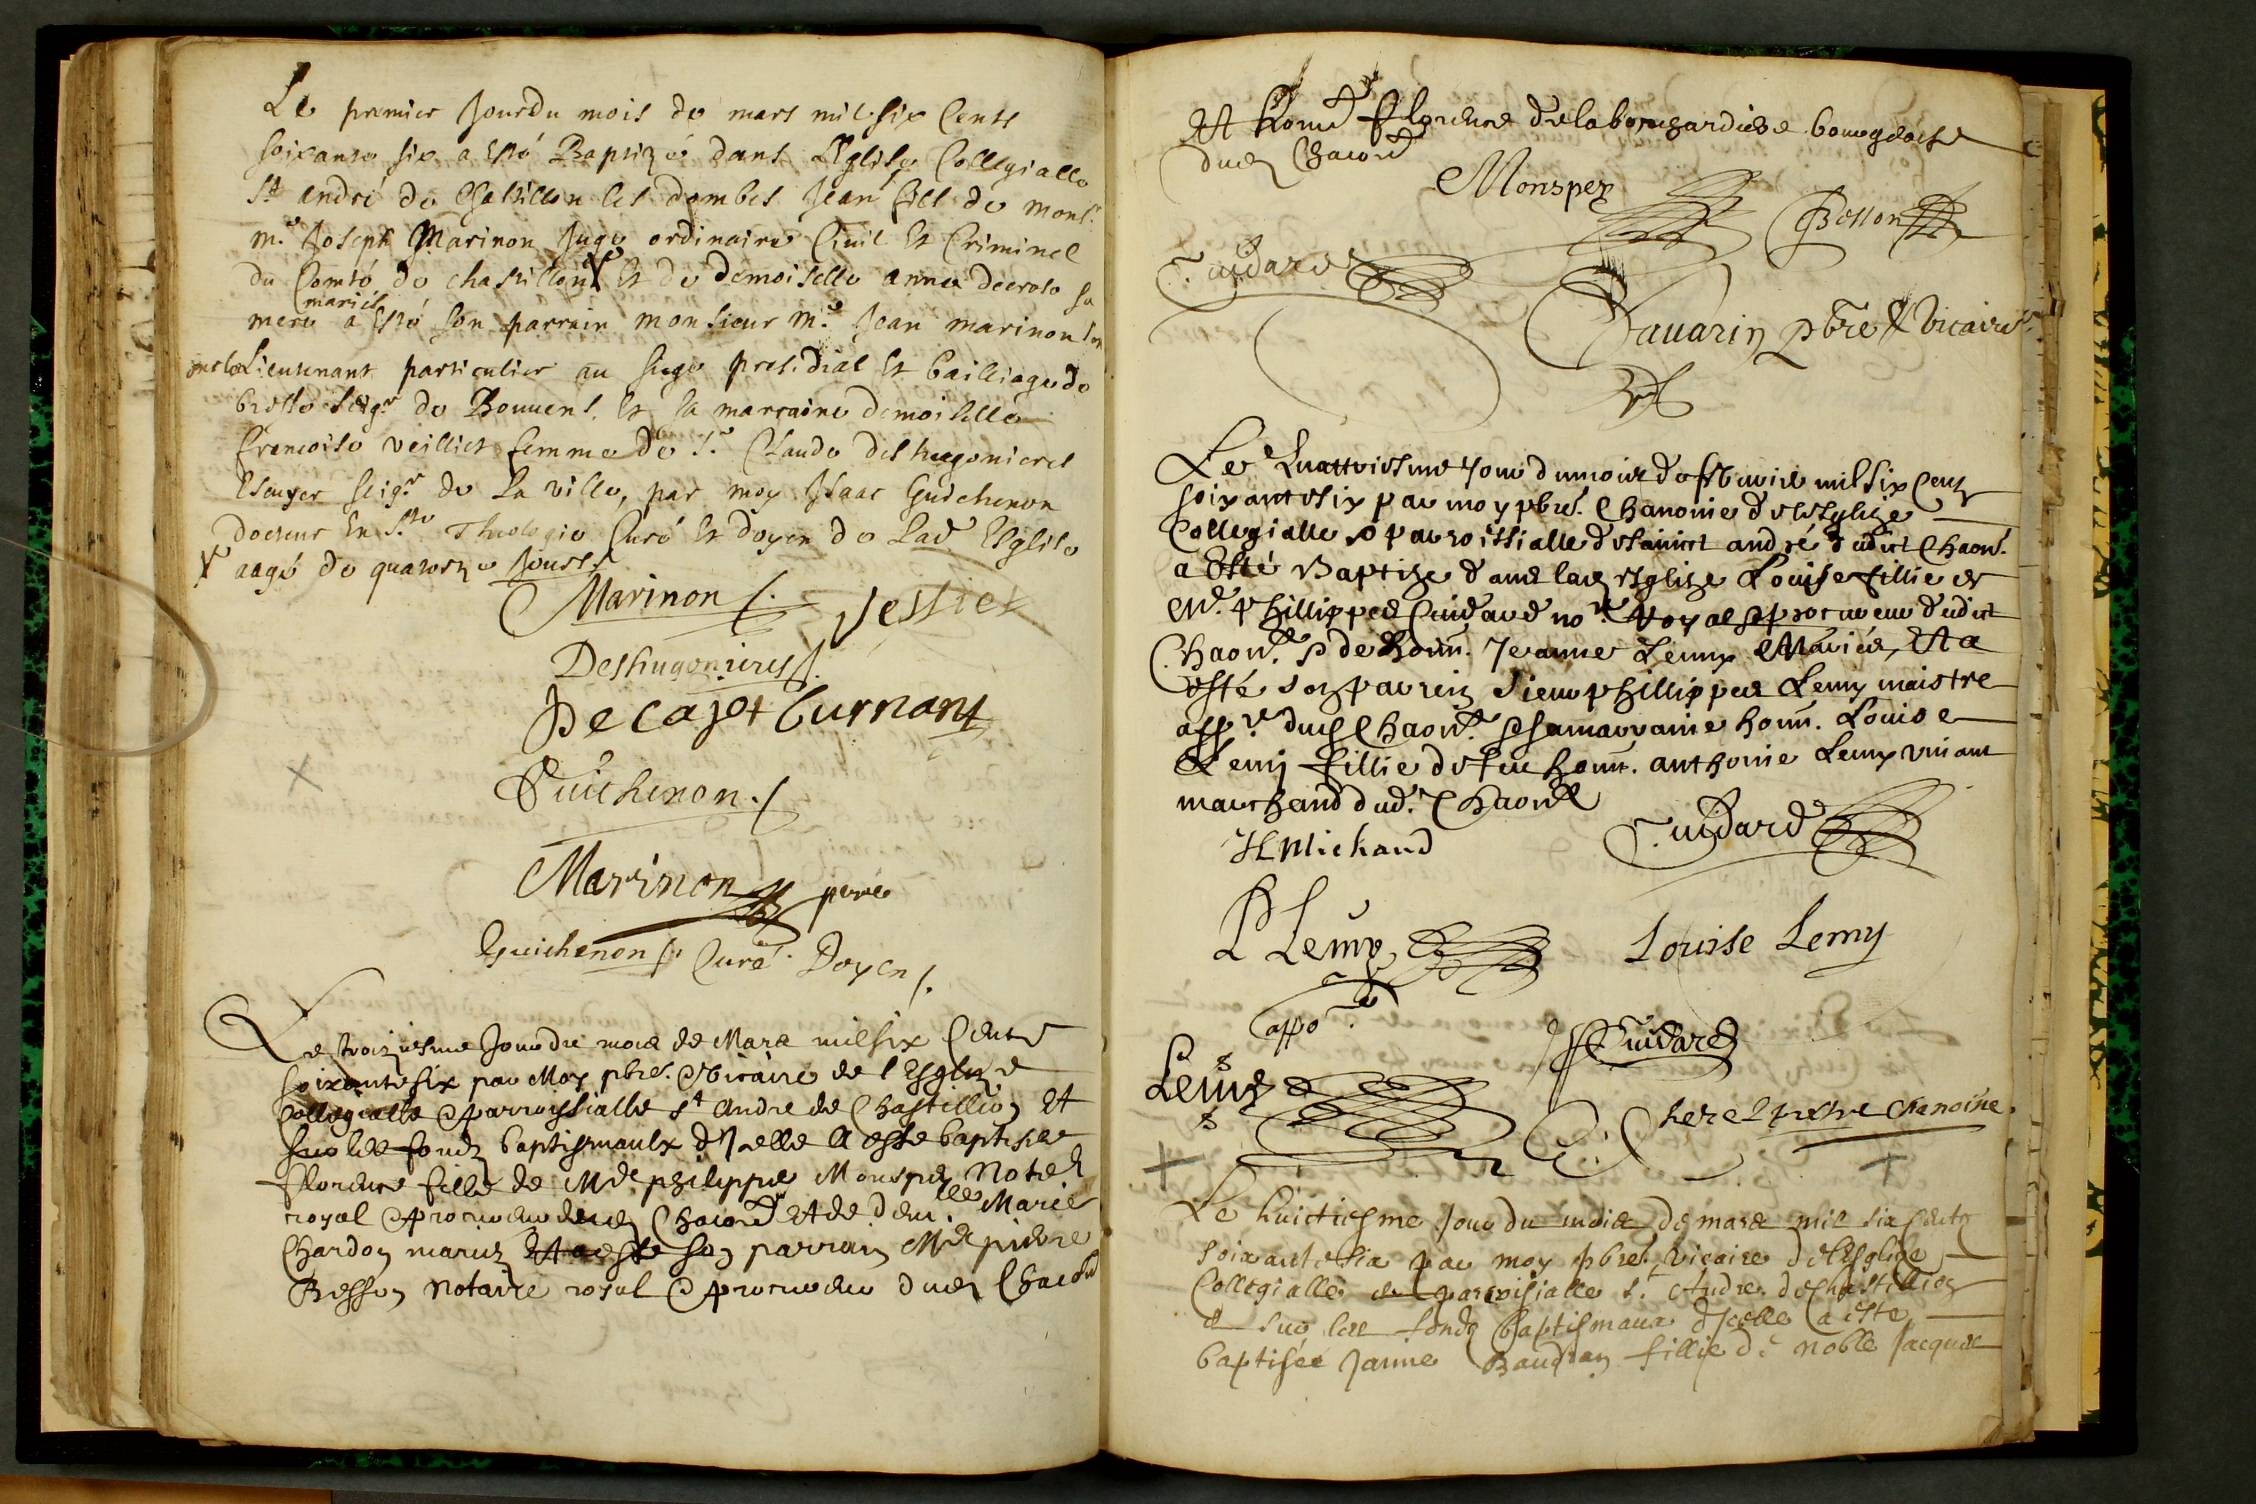 Le premier Jour du mois de mars mil six Cents
soixante six a esté Baptizé dans L'Eglise Collegialle
St andré de Chastillon les dombes Jean fils de monsr.
me. Joseph Marinon Juge ordinaire Civil et Criminel
du Comté de chastillon et de demoiselle anne
mariés
mere a esté son parrain monsieur me. Jean marinon son
oncle Lieutenant particulier au siege presidial et bailliage de
bresse seigr de Bouvens. et sa marraine demoiselle
francoise veilliet femme de sr. Claude deshugonieres
Escuyer seigr de La ville, par moy Isaac Guichenon
docteur en Ste Theologie Curé et doyen de Lad Esglise
aagé de quatorze Jours
Marinon
Deshugonieres
Decajot burnant
Guichenon
Marinon pere
Guichenon Curé Doyen
Le troiziesme Jour du mois de Mars mil six Cents
soixante six par Moy pbre. vicaire de l Esglize
Collegialle parroissialle St Andre de Chastillion et
sur les fondz baptismaulx d'Icelle a esté baptisée
florence fille de Me philippe Monspey Notere
royal procureur dud Chaon et de delle Marie
Chardon mariez Et a esté son parrain Me pierre
Besson notaire royal procureur dud Chaon
Et honn florence de la bourgeoise
dud Chaon
Monspey
Besson
Cuidard
Favarin pbre vicaire
Le quattriesme Jour du mois de mil six Centz
soixante six par moy pbre. Chanoine de l'esglize
Collegialle parroissialle de sainct andré dudict Chaon.
a Esté Baptize dans lad esglize Louise fillie de
Me. phillippes Cuidard nore. Royal procureur dudict
Chaon. de honn. Jeanne Lemy Mariés, Et a
esté son parrein sieur phillippes Lemy maistre
appre dud Chaon. sa marraine honn. Louise
Lemy fillie de feu honn. anthoine Lemy vivant
marchand dud. Chaon
Michaud
Cuidard
P Lemy
Louise Lemy
appo.re
Cuidard
Lemy
prestre chanoine
Le huictiesme Jour du mois de mars mil six Centz
soixante six par moy pbre. vicaire de l'Esglize
Collegialle parroisialle St. Andre de Chastillion
et sur les fondz baptismaux d'Icelle a esté
baptisée Janne Baudran fillie de noble Jacques